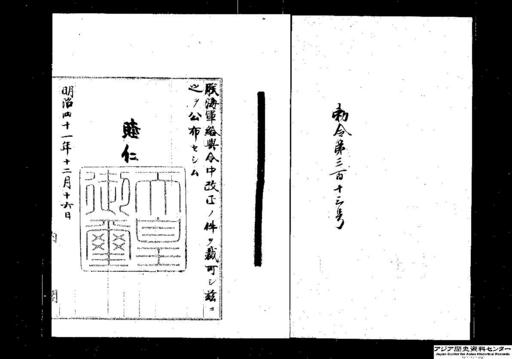 勅令第三百十三号
朕海軍給与令中改正ノ件ヲ裁可シ茲ニ
之ヲ公布セシム
睦仁
天皇
御璽
明治四十一年十二月十六日
内閣
アジア歴史資料センター
Japan Center for Asian Historical Records